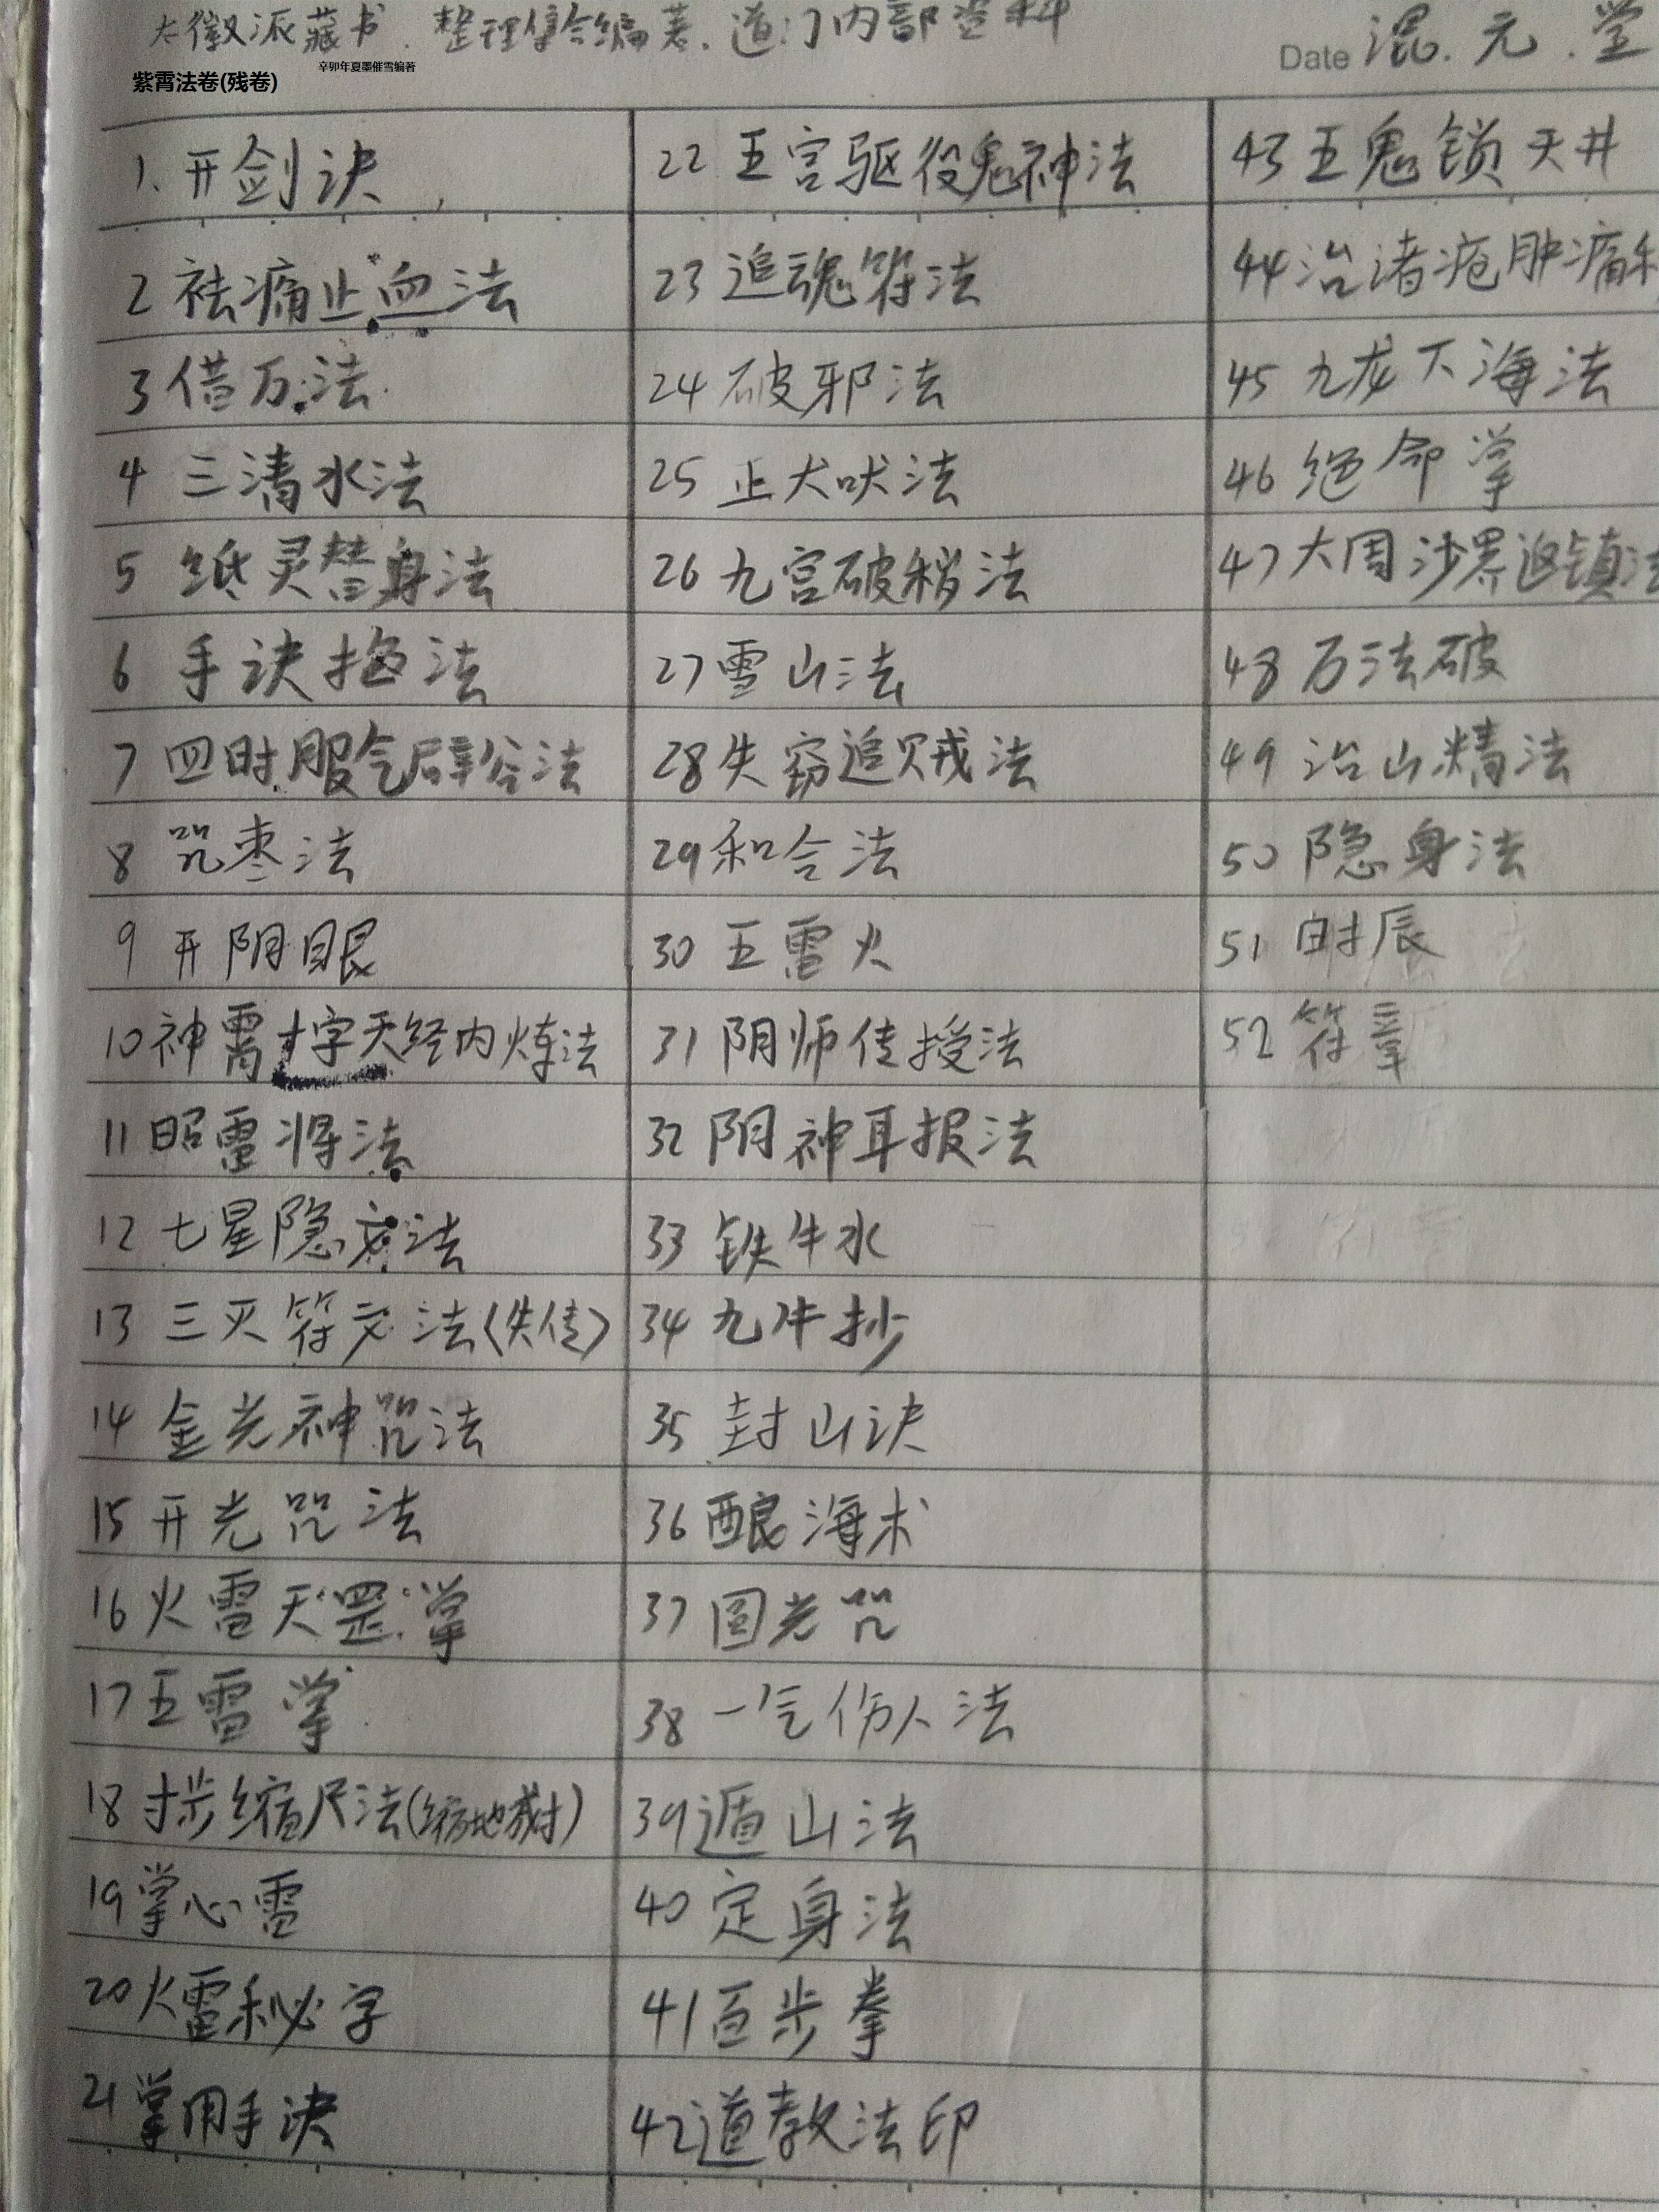 太徽派藏书.整理集合编著.道门内部资料
Date 混.元.堂
辛卯年夏墨催雪编著
紫霄法卷(残卷)
1、开剑诀
2 祛痛止血法
3 借万法
4 三清水法
5 纸灵替身法
6 手诀拖法
7 四时服气辟谷法
8 咒枣法
9 开阴眼
10 神霄十字天经内炼法
11 昭雷将法
12 七星隐文法
13 三灭符文法(失传)
14 金光神咒法
15 开光咒法
16 火雷天罡掌
17 五雷掌
18 寸步缩尺法(缩地成寸)
19 掌心雷
20 火雷秘字
21 掌用手诀
22 五宫驱役鬼神法
23 追魂符法
24 破邪法
25 止犬吠法
26 九宫破稍法
27 雪山法
28 失窃追贼法
29 和合法
30 五雷火
31 阴师传授法
32 阴神耳报法
33 铁牛水
34 九牛抄
35 封山诀
36 酿海术
37 圆光咒
38 一气伤人法
39 遁山法
40 定身法
41 百步拳
42 道教法印
43 五鬼锁天井
44 治诸疮肿痛
45 九龙下海法
46 绝命掌
47 大周沙界返镇法
48 万法破
49 治山精法
50 隐身法
51 时辰
52 符章